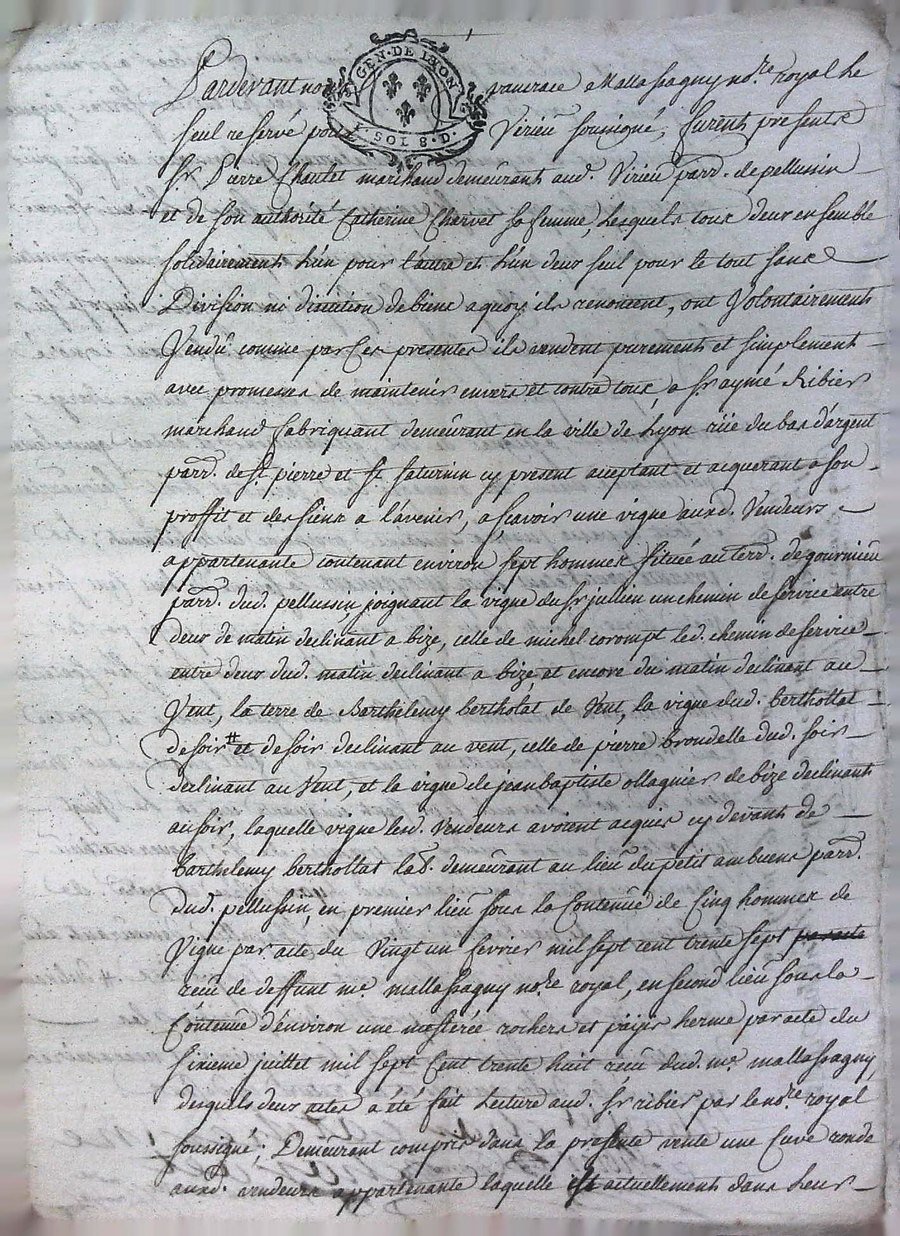 GEN·DE LYON
I·SOL 8·D·
Pardevant nous pancrace Mallassagny no.re royal he
seul reservé pour Virieu soussigné, furents presents
Sr. Pierre Chautet marchand demeurants aud. Virieu parr. de pellussin
et de son authorité Catherine Charvet sa femme, lesquels tous deux ensemble
solidairements l'un pour l'autre et l'un deux seul pour le tout sans
Division ni discution de biens a quoy ils renoncent, ont Volontairements
Vendû comme par ces presentes ils vendent purements et simplement
avec promesses de maintenir envers et contre tous, a Sr. aymé Ribier
marchand fabriquant demeurant en la ville de Lyon rüe du bas d'argent
parr. de St. pierre et St. saturnin cy present aceptant et acquerant a son
proffit et des siens a l'avenir, a sçavoir une vigne auxd. Vendeurs
appartenante contenant environ sept hommes située au terr. de gournieu
parr. dud. pellussin, joignant la vigne du Sr. jullien un chemin de service entre
deux de matin declinant a bize, celle de michel corompt led. chemin de service
entre deux dud. matin declinant a bize, et encore du matin declinant au
Vent, la terre de Barthelemy berthotat de Vent, la vigne dud. berthollat
de soir # et de soir declinant au vent, celle de pierre brondelle dud. soir
declinant au Vent, et la vigne de jean baptiste ollagnier de bize declinants
au soir, laquelle vigne lesd. Vendeurs avoient acquis cy devants de
barthelemy berthollat lab. demeurant au lieu du petit ambuens parr.
dud. pellussin, en premier lieu sous la Contenüe de Cinq hommes de
Vigne par acte du Vingt un fevrier mil sept cent trente sept par acte
receu de deffunt me. mallassagny no.re royal, en second lieu sous la
Contenüe d'environ une mesterée rochers et païs herme par acte du
sixieme juillet mil sept Cent trente huit receu dud. me. mallassagny,
desquels deux actes a été fait Lecture aud. Sr. ribier par le no.re royal
soussigné; Demeurant compris dans la presente vente une Cuve ronde
auxd. vendeurs appartenante laquelle est actuellements dans leur